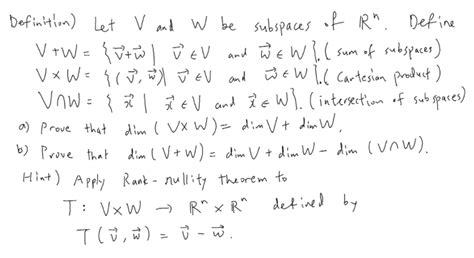 Definition) Let V and W be subspaces of ℝⁿ. Define
V+W = { v⃗+w⃗ | v⃗ ∈ V and w⃗ ∈ W }. (sum of subspaces)
V×W = { (v⃗, w⃗) | v⃗ ∈ V and w⃗ ∈ W }. (Cartesian product)
V∩W = { x⃗ | x⃗ ∈ V and x⃗ ∈ W }. (intersection of subspaces)
a) Prove that dim (V×W) = dim V + dim W.
b) Prove that dim (V+W) = dim V + dim W − dim (V∩W).
Hint) Apply Rank-nullity theorem to
T: V×W → ℝⁿ × ℝⁿ defined by
T(v⃗, w⃗) = v⃗ − w⃗.